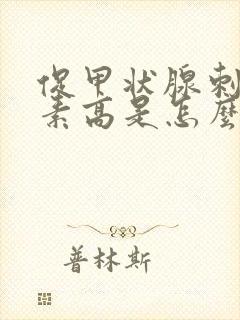 促甲状腺刺
素高是怎麼
普林斯